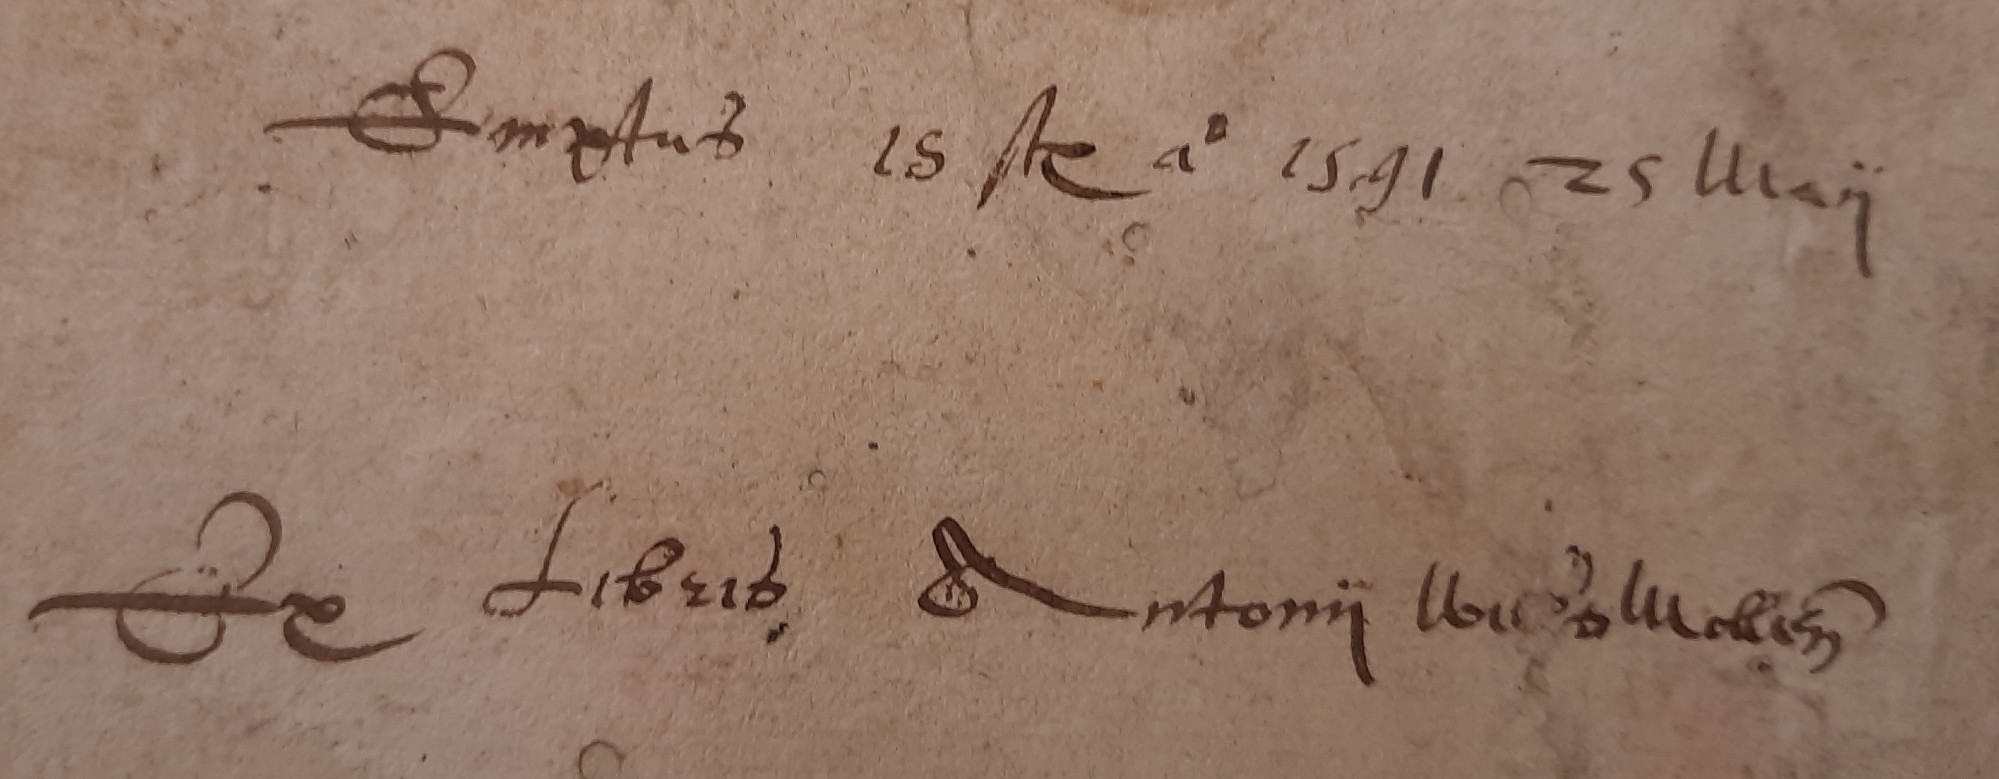 Emptus 15 st a° 1591 25 Maij
Ex Libris Antonij